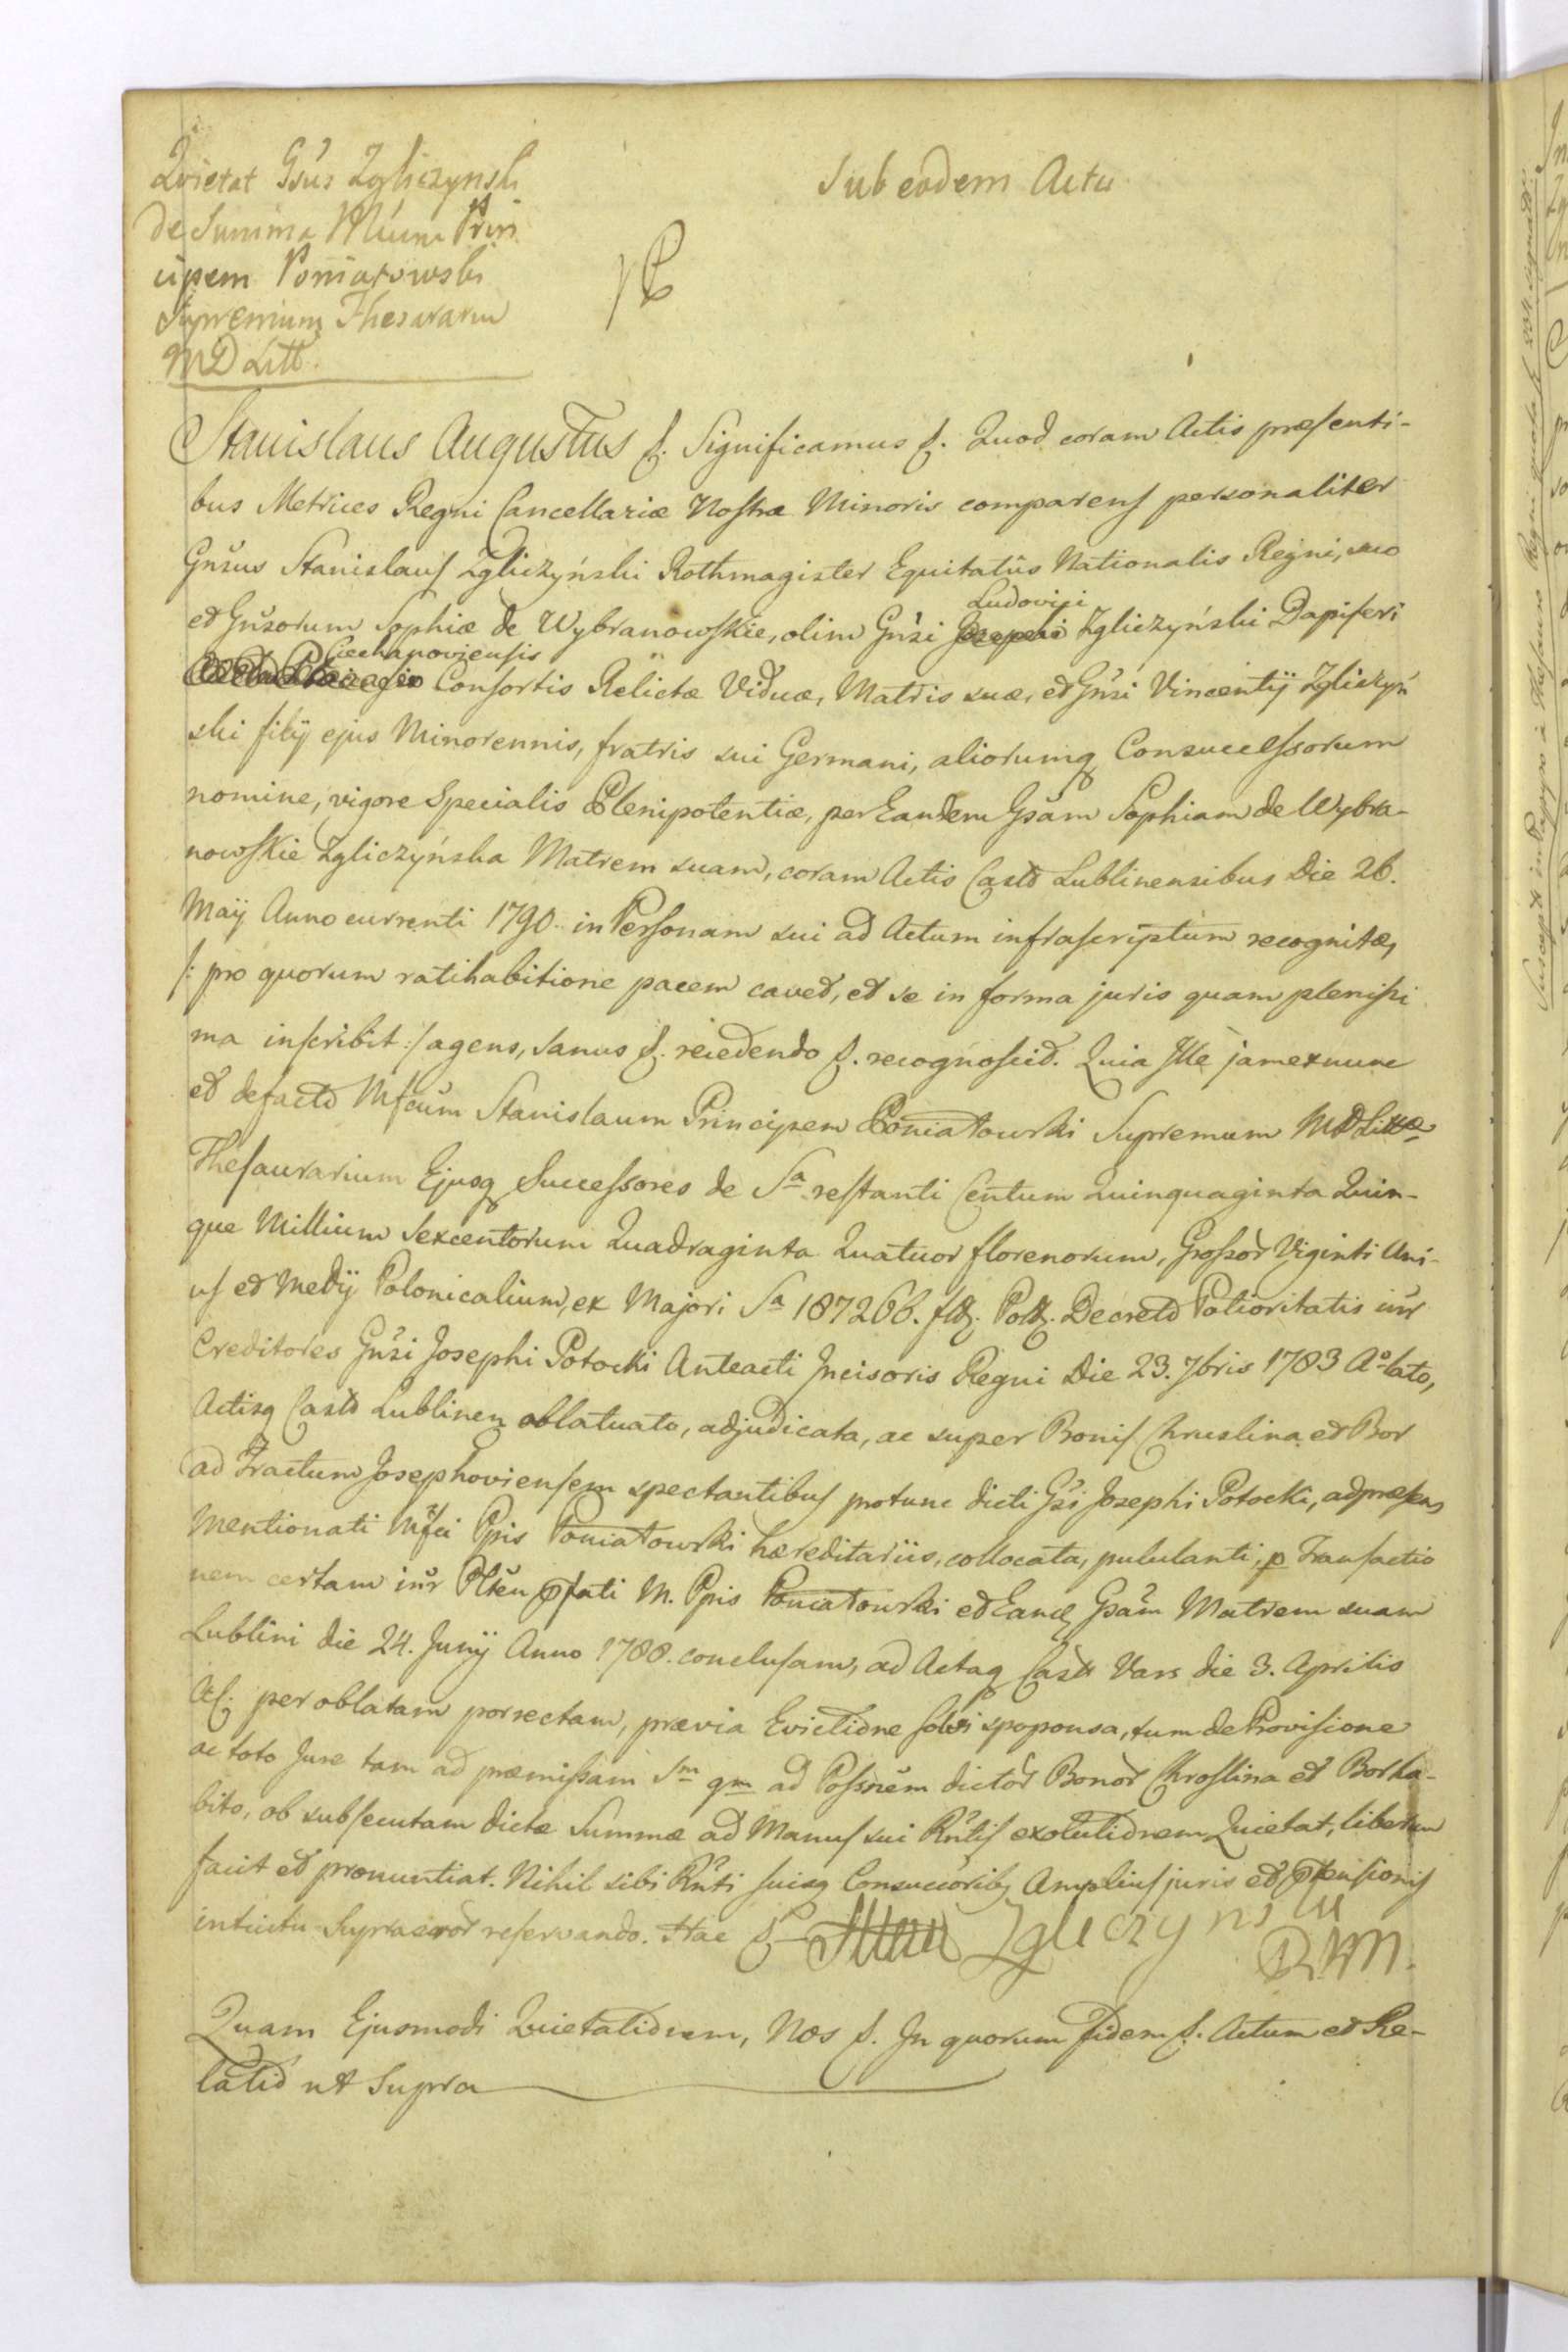 Quietat Gsus Zgliczynski
de Summa Mcum Prin
cipem Poniatowski
Supremum Thesararium
MD Litt.
Sub eodem Actu
Stanislaus Augustus &. Significamus &. Quod coram Actis præsenti-
bus Metrices Regni Cancellariæ Nostræ Minoris comparens personaliter
Gnsus Stanislaus Zgliczyński Rothmagister Equitatûs Nationalis Regni, suo
Ludovici
et Gnsorum Sophiæ de Wybranowskie, olim Gnsi Josephi Zgliczyński Dapiferi
Ciechanoviensis
Consortis Relictæ Viduæ, Matris suæ, et Gnsi Vincentij Zgliczyń
ski filij ejus Minorennis, fratris sui Germani, aliorumq Consuccessorum
nomine, vigore Specialis Plenipotentiæ, per Eandem Gsam Sophiam de Wybra-
nowskie Zgliczyńska Matrem suam, coram Actis Castr Lublinensibus Die 26.
Maij Anno currenti 1790 in Personam sui ad Actum infrascriptum recognitæ,
/: pro quorum ratihabitione pacem cavet, et se in forma juris quam plenissi
ma inscribit :/ agens, sanus &. recedendo &. recognoscit. Quia Ille jam ex nunc
et de facto Mfcum Stanislaum Principem Poniatowski Supremum MD Litt
Thesaurarium Ejusq Successores de Sa restanti Centum Quinquaginta Quin-
que Millium Sexcentorum Quadraginta Quatuor florenorum, Grossor Viginti Uni-
us et Medij Polonicalium, ex Majori Sa 187266. fl. Pol. Decreto Potioritatis intr
Creditores Gnsi Josephi Potocki Anteacti Incisoris Regni Die 23. 7bris 1783 Ao lato,
Actisq Castr Lublinen oblatuato, adjudicata, ac super Bonis Chruslina et Bor
ad Tractum Josephoviensem spectantibus protunc dicti Gsi Josephi Potocki, ad præsens
Mentionati Mfci Ppis Poniatowski hæreditariis, collocata, pululanti, p Transactio
nem certam intr Plten pfati M. Ppis Poniatowski et Eand Gsam Matrem suam
Lublini die 24. Junij Anno 1788. conclusam, ad Actaq Castr Vars die 3. Aprilis
A C. per oblatam porrectam, prævia Evictione spoponsa, tum de Provisione
ac toto Jure tam ad præmissam Sm qm ad Possnem dictor Bonor Chroslina et Bor ha-
bito, ob subsecutam dictæ Summæ ad Manus sui Rntis exolutionem Quietat, liberum
facit et pronuntiat. Nihil sibi Rnti suisq Consuccoribq Amplius juris et ptensionis
intuitu Supraeror reservando. Hac &
Zgliczynski
R.W.M.
Quam Ejusmodi Quietationem, Nos &. In quorum fidem &. Actum et Re-
latio ut Supra